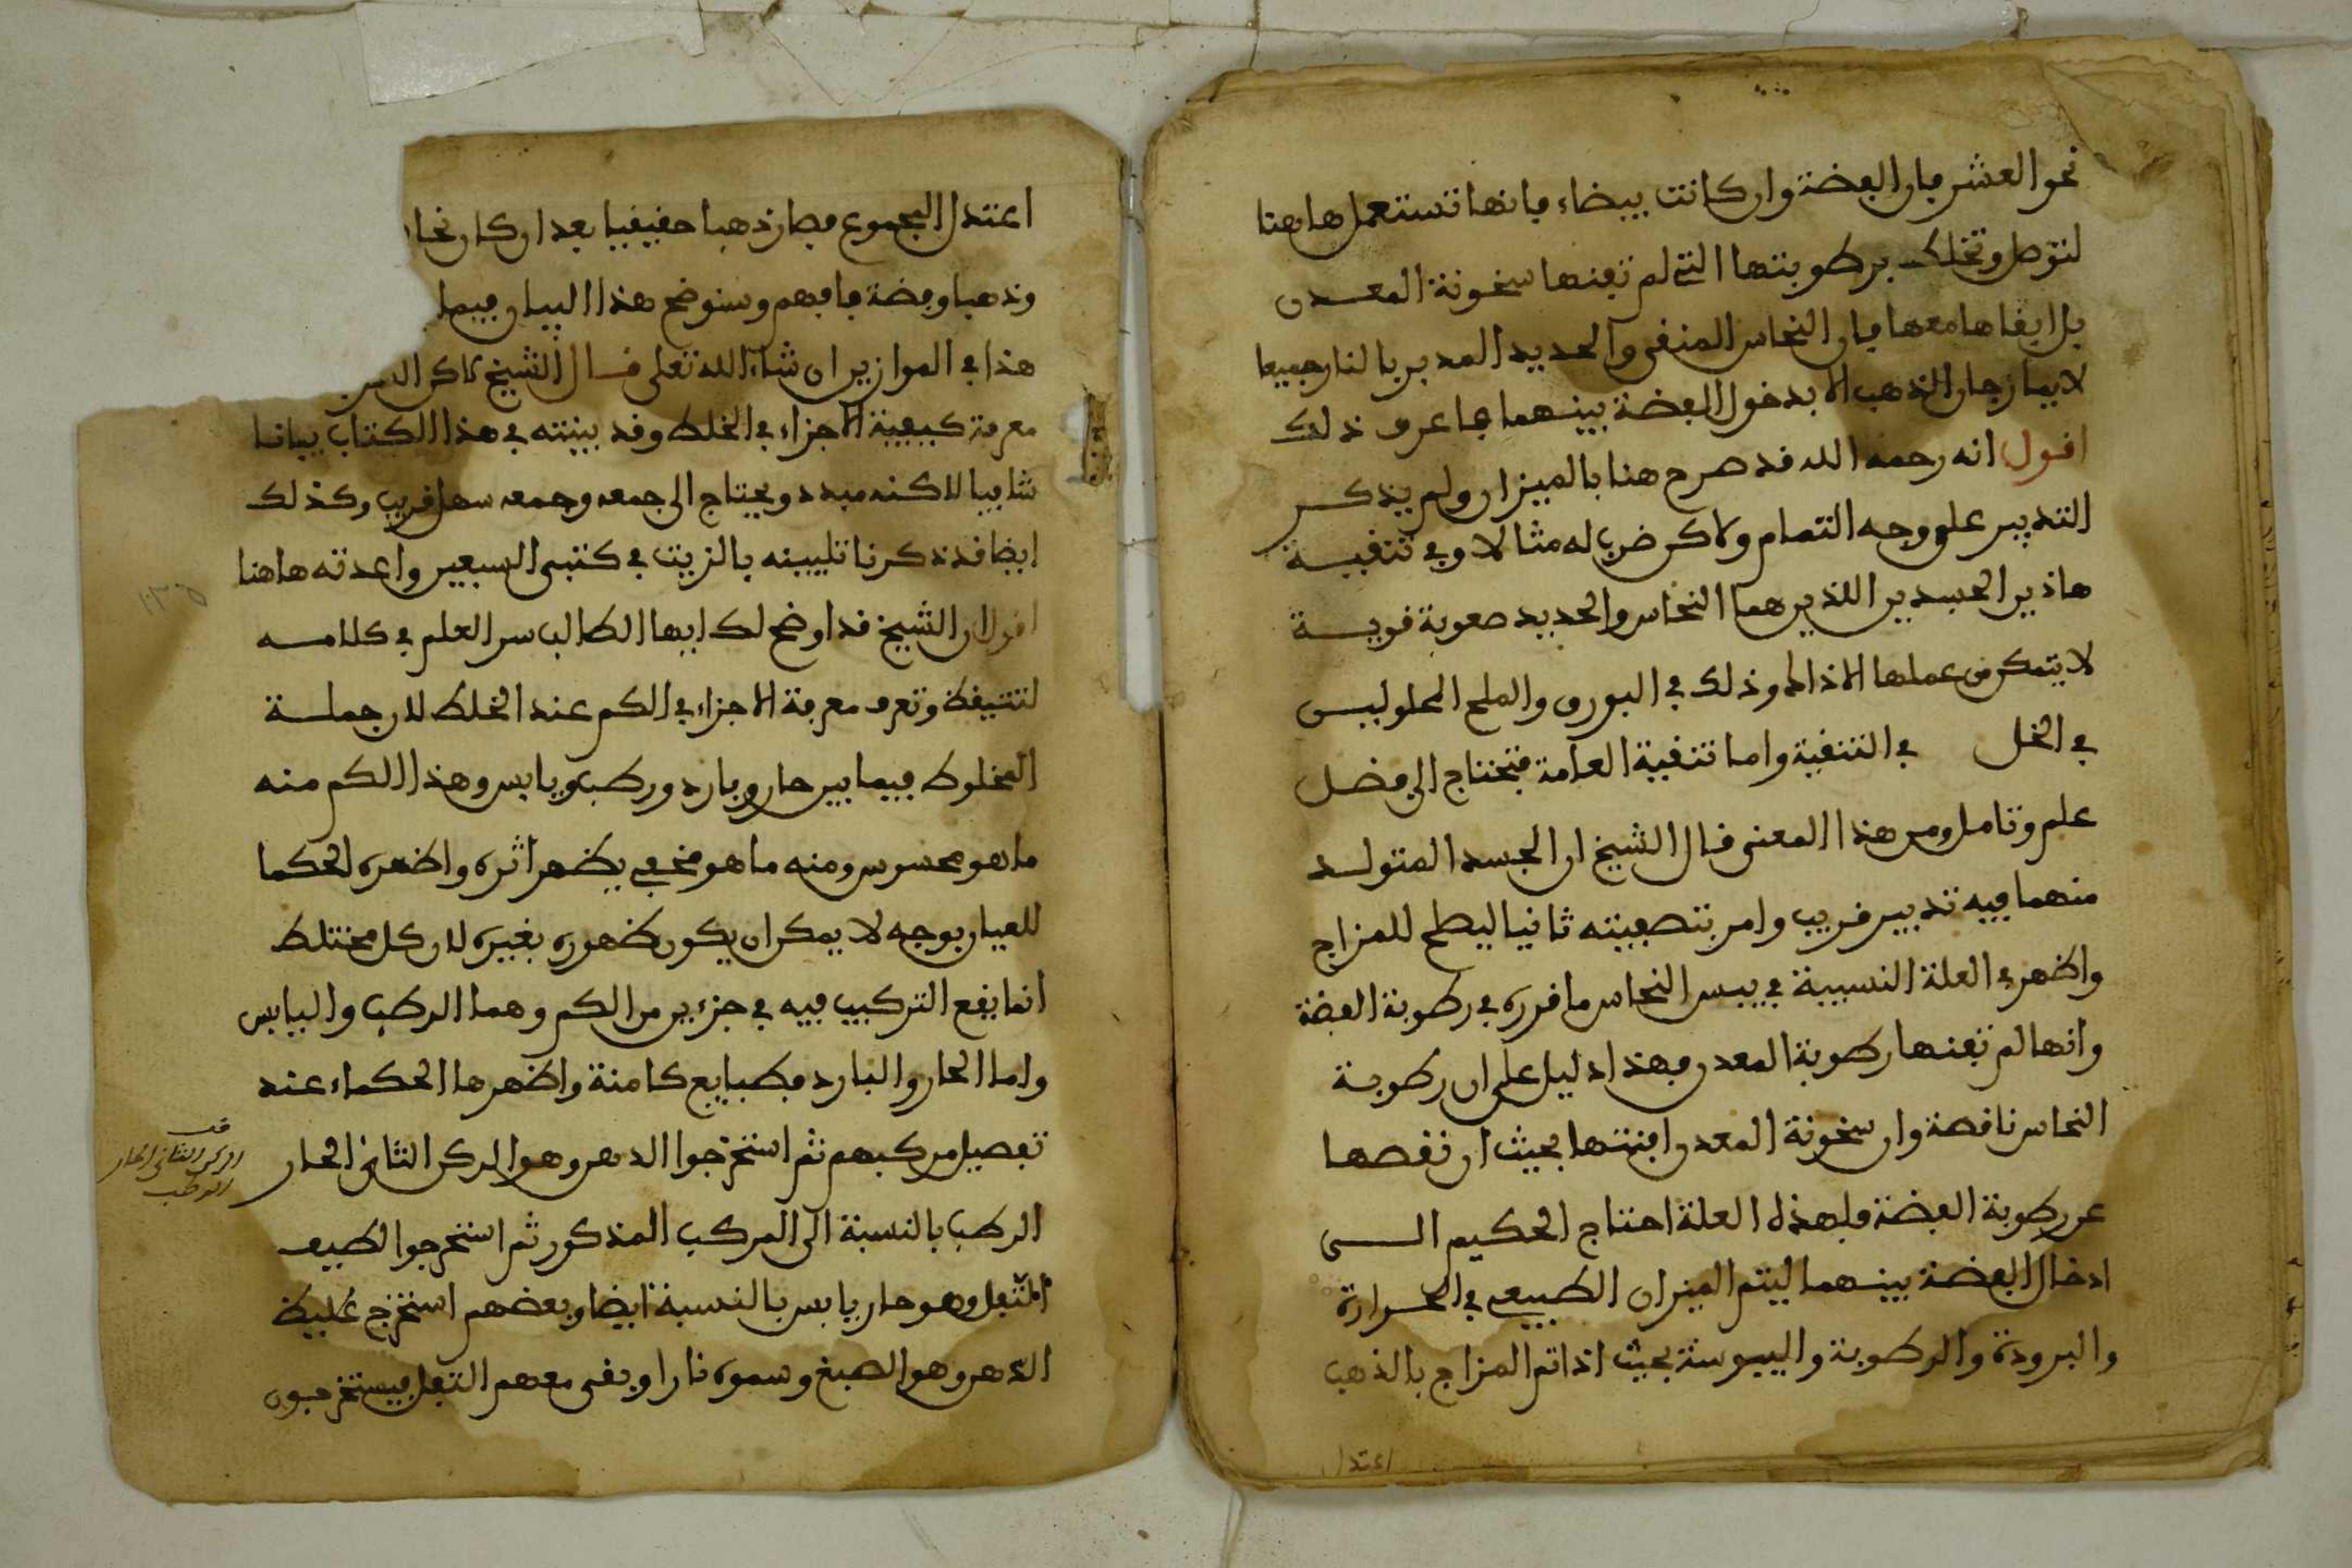 نحو العشر فان الفضة وان كانت بيضاء فانها تستعمل هاهنا
لتوصل وتخلك برطوبتها التي لم تفنها سخونة المعدن
بل ابقاها معها فان النحاس المنقى والحديد المدبر بالنار جميعا
لا يمازجان الذهب الا بدخول الفضة بينهما فاعرف ذلك
اقول انه رحمه الله قد صرح هنا بالميزان ولم يذكر
التدبير على وجه التمام ولاكن ضرب له مثالا وفي تنقية
هاذين الجسدين اللذين هما النحاس والحديد صعوبة قوية
لا يتمكن من عملها الا ذا وذلك في البورق والملح المحلو ليس
في الخل في التنقية واما تنقية العامة فتحتاج الى فضل
علم وتامل ومن هذا المعنى قال الشيخ ان الجسد المتولد
منهما فيه تدبير قريب وامر بتصفيته ثانيا ليصلح للمزاج
واظهر العلة النسبية في يبس النحاس ما قرره في رطوبة الفضة
وانها لم تفنها رطوبة المعدن فهذا دليل على ان رطوبة
النحاس ناقصة وان سخونة المعدن افنتها بحيث ان نقصها
عن رطوبة الفضة فلهذه العلة احتاج الحكيم الى
ادخال الفضة بينهما ليتم الميزان الطبيعي في الحرارة
والبرودة والرطوبة واليبوسة بحيث اذا تم المزاج بالذهب
اعتدل
اعتدل المجموع فصار ذهبا حقيقيا بعد ان كان نحا
وذهبا وفضة فافهم وسنوضح هذا البيان فيما
هذا في الموازين ان شاء الله تعلى قال الشيخ
معرفة كيفية الاجزاء في الخلط وقد بينته في هذا الكتاب بيانا
شافيا لاكنه مبدد ويحتاج الى جمعه وجمعه سهل قريب وكذلك
ايضا قد ذكرنا تليينه بالزيت في كتبي السبعين واعدته هاهنا
اقول ان الشيخ قد اوضح لك ايها الطالب سر العلم في كلامه
لتتيقظ وتعرف معرفة الاجزاء في الكم عند الخلط لان جملة
المخلوط فيما بين حار وبارد ورطب ويابس وهذا الكم منه
ما هو محسوس ومنه ما هو مخفي يظهر اثره واظهره الحكما
للعيار بوجه لا يمكن ان يكون ظهوره بغيره لان كل مختلط
انما يقع التركيب فيه في جزءين من الكم وهما الرطب واليابس
واما الحار والبارد فطبايع كامنة واظهرها الحكماء عند
تفصيل مركبهم ثم استخرجوا الدهن وهو الركن الثاني الحار
الركن الثاني الحار
الرطب
الرطب بالنسبة الى المركب المذكور ثم استخرجوا لطيف
الثفل وهو حار يابس بالنسبة ايضا وبعضهم استخرج غليظ
الدهن وهو الصبغ وسموه نارا وبقى معهم الثفل فيستخرجون